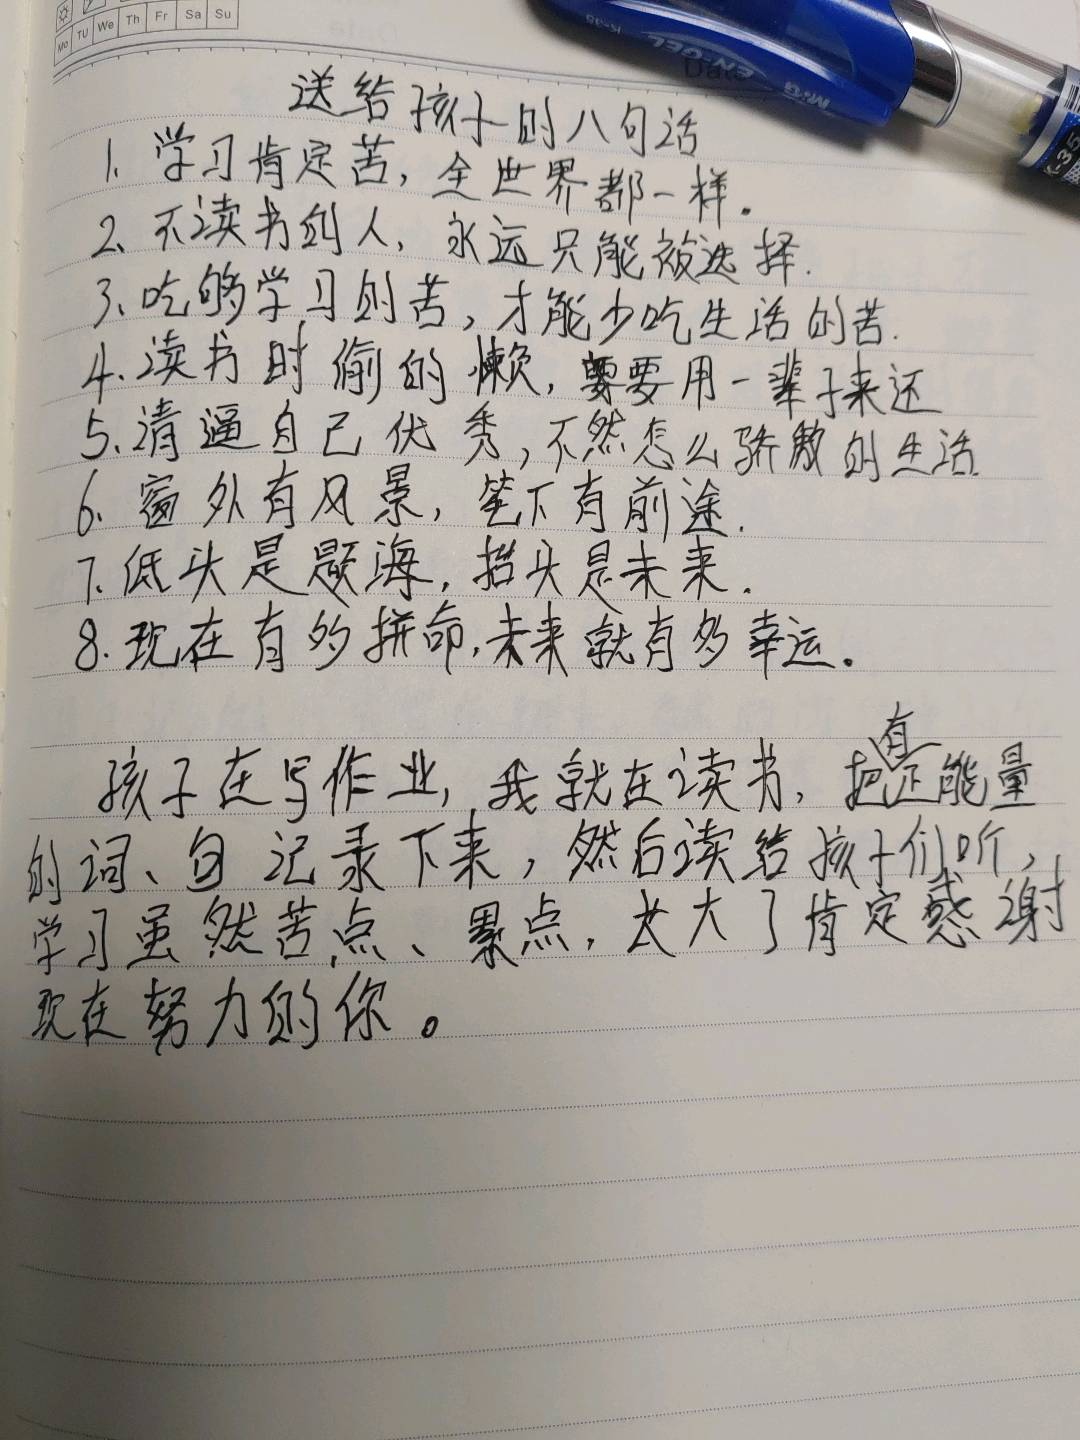 Mo Tu We Th Fr Sa Su
Date
EN-GEL K-35
M&G
K-35
送给孩子的八句话
1. 学习肯定苦，全世界都一样。
2、不读书的人，永远只能被选择.
3、吃够学习的苦，才能少吃生活的苦.
4.读书时偷的懒，要要用一辈子来还
5.请逼自己优秀，不然怎么骄傲的生活.
6、窗外有风景，笔下有前途.
7.低头是题海，抬头是未来.
8.现在有多拼命，未来就有多幸运。
孩子在写作业，我就在读书，把有正能量
的词、句记录下来，然后读给孩子们听，
学习虽然苦点、累点，长大了肯定感谢
现在努力的你。